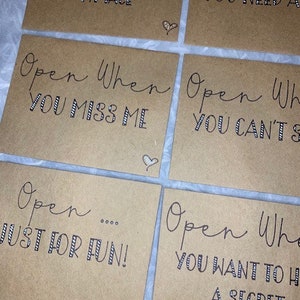 YOU NEED A
Open When
YOU MISS ME
Open Wh
YOU CAN'T S
Open ....
JUST FOR FUN!
Open Whe
YOU WANT TO H
A SECRET